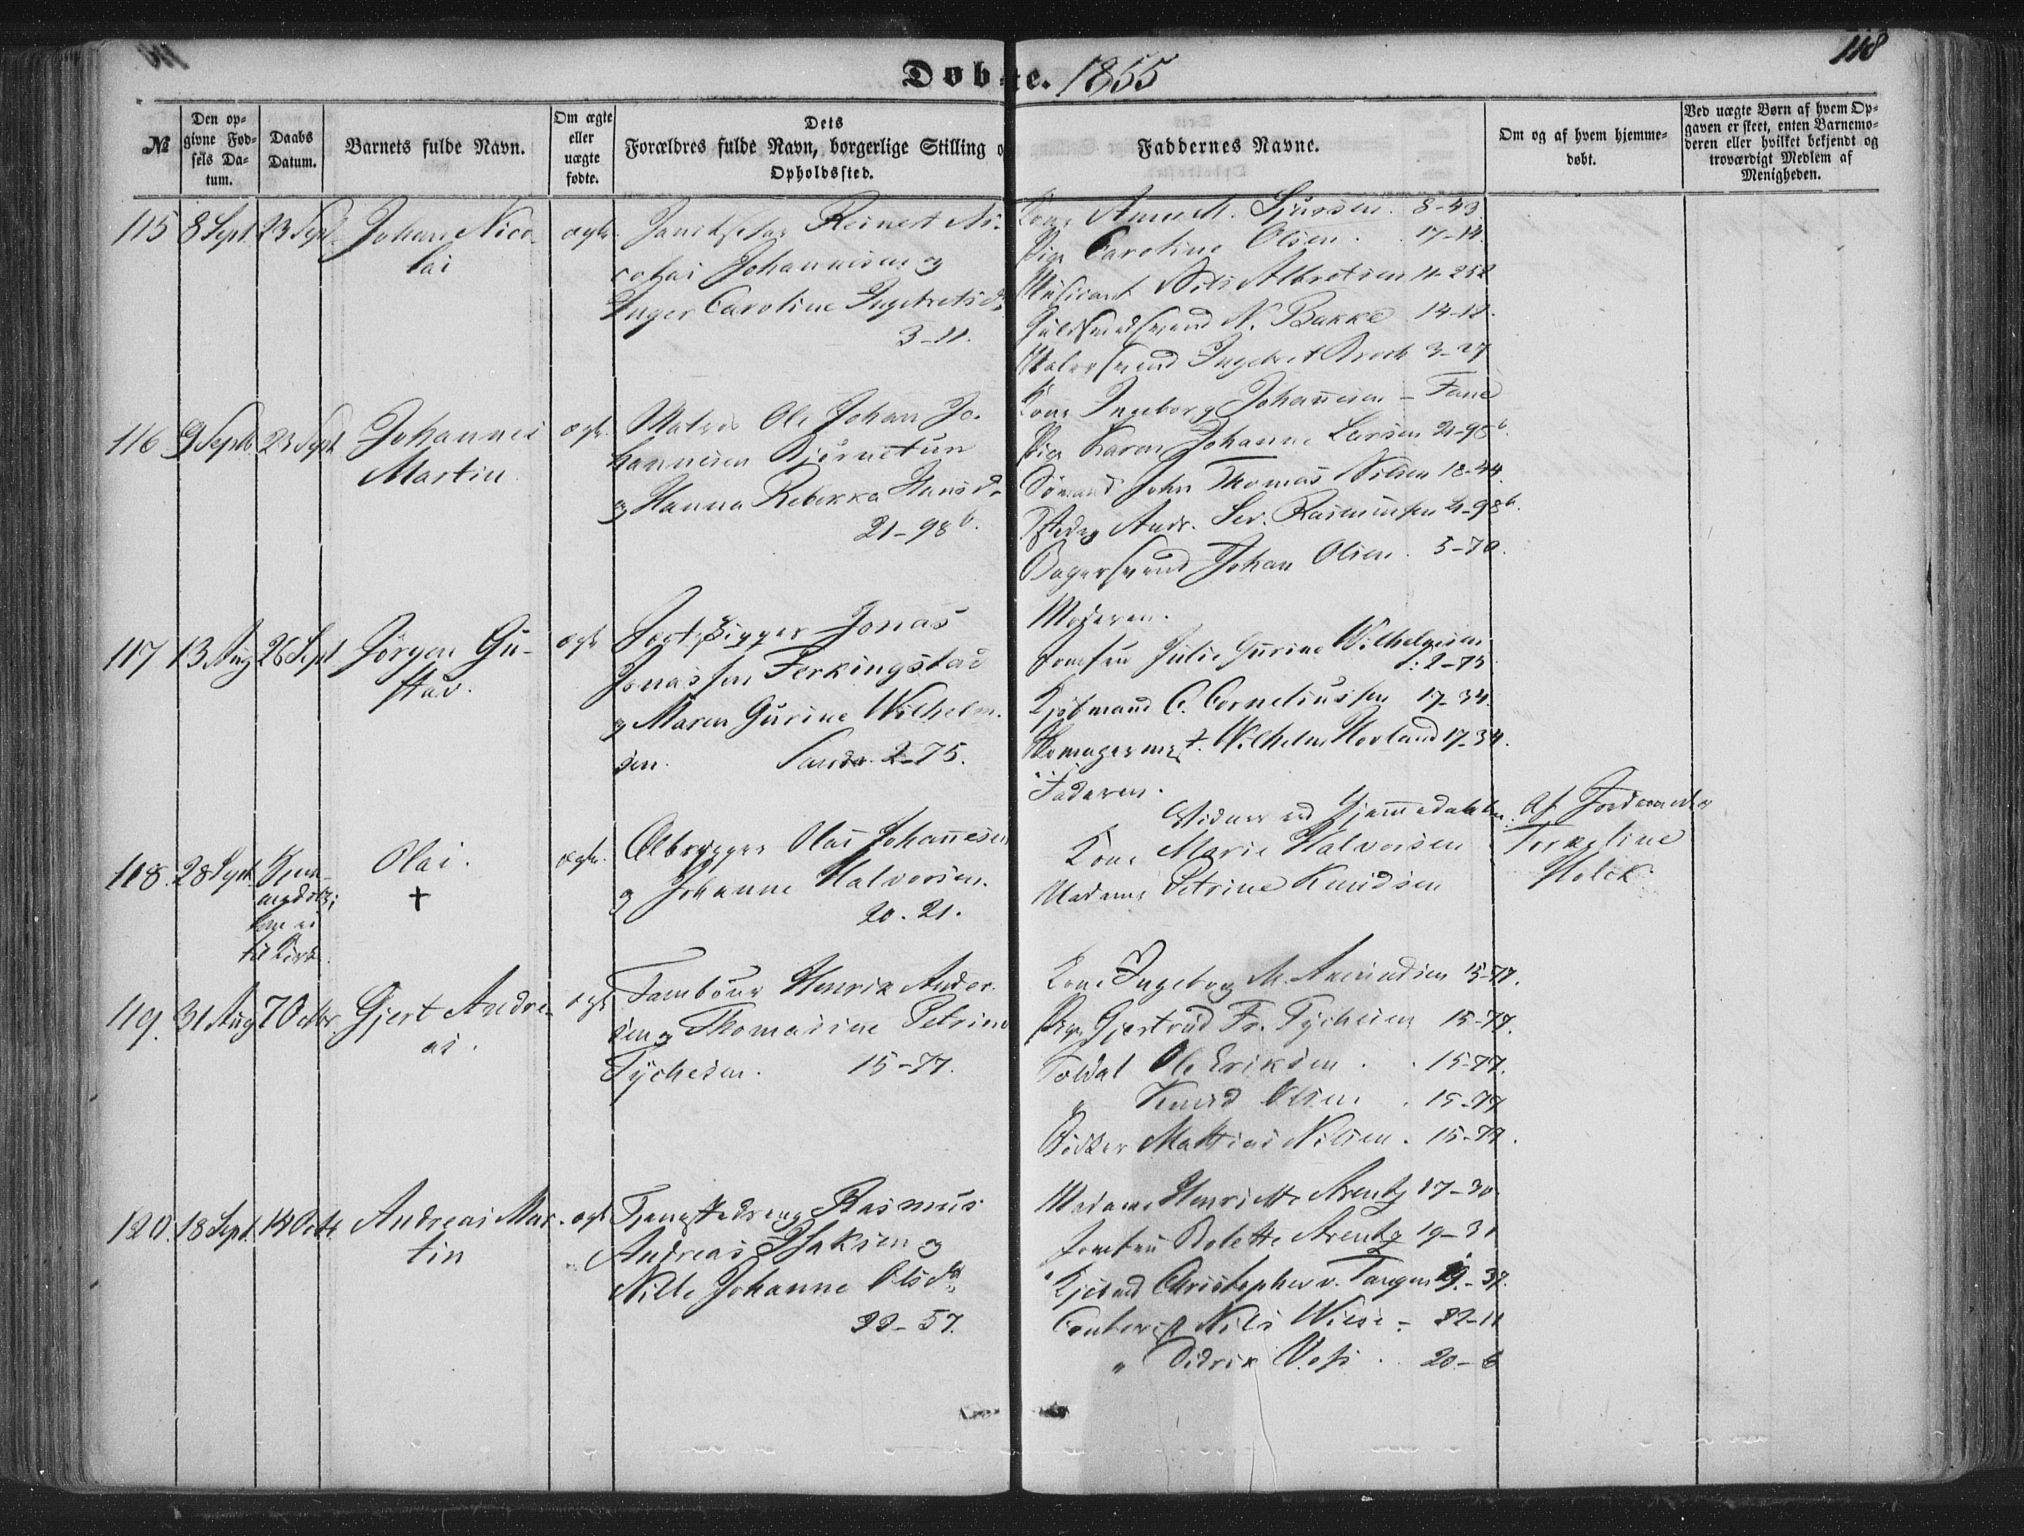 118
Døbte. 1855
№
Den opgivne Fødsels Datum.
Daabs Datum.
Barnets fulde Navn.
Om ægte eller uægte fødte.
Dets Forældres fulde Navn, borgerlige Stilling o
Opholdssted.
Faddernes Navne.
Om og af hvem hjemmedøbt.
Ved uægte Børn af hvem Opgaven er skeet, enten Barnemoderen eller hvilket bekjendt og troværdigt Medlem af Menigheden.
115 8 Sept. 23 Sept. Johan Nico-
lai
ægte.
Reinert Ni-
colai Johannesen og
Inger Caroline Ingebretsd.
3-11.
Kone Anne M. Sjursen. 8-43.
Pige Caroline Olsen. 17-14.
Musicant Nils Albretsen 11-252
Guldsmedsvend N. Bakke 14-12.
Malersvend Ingebret Brock 3-27
116 9 Septb. 23 Sept Johannes
Martin
ægte.
Matros Ole Johan Jo-
hannesen Bjørnetun
og Hanna Rebekka Hansd.
21-98 b.
Kone Ingeborg Johannesen - Fane
Pige Karen Johanne Larsen 21-98 b.
Sømand John Thomas Nilsen 18-44.
Andr. Sev. Rasmussen 21-98 b.
Bagersvend Johan Olsen. 5-70.
117 13 Aug 26 Sept Jørgen Gu-
stav.
ægte
Jonas
Jonassen Ferkingstad
og Maren Gurine Wilhelm-
sen. Sandv. 2-75.
Moderen.
Jomfru Julie Gurine Wilhelmsen
S: 2-75.
Kjøbmand C. Corneliussen 17-34.
Skomagermst. Wilhelm Hovland 17-34.
Faderen.
118. 28 Sept. Hjem-
medøbt;
kom ei
til Kirke.
Olai.
+
ægte.
Ølbrygger Olai Johannesen
og Johanne Halvorsen.
20-21.
Vidner ved Hjemmedaaben.
Kone Marie Halvorsen
Madame Petrine Knudsen
Af Jordmoder
Torkeline
Holck.
119. 31 Aug 7 Octbr. Gjert Andre-
as.
ægte
Tambour Henrik Ander-
sen og Thomasine Petrine
Tychesen. 15-77.
Kone Ingeborg M. Amundsen 15-77.
Pige Gjertrud Fr. Tychesen 15-77.
Soldat Ole Eriksen. 15-77.
" Knud Olsen. 15-77
Bødker Mathias Nilsen. 15-77.
120. 18 Sept. 14 Octb. Andreas Mar-
tin
ægte
Tjenestedreng Rasmus
Andreas Isaksen og
Nille Johanne Olsdtr.
22-57.
Madame Henriette Arentz 17-30.
Jomfru Bolette Arentz 19-30
Christopher v. Tangen 19-37.
Contorist Nils Wiese - 22-11
" Didrik Voss. 20-6